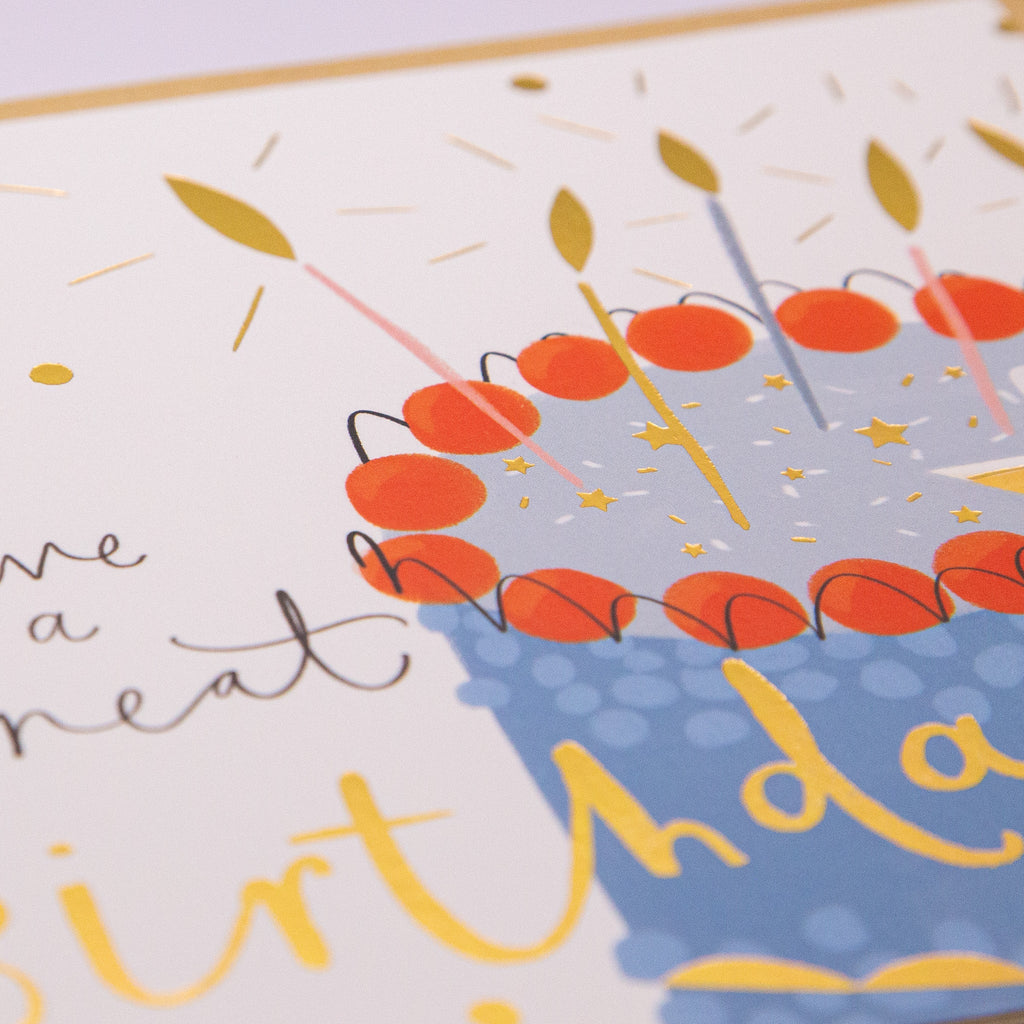 ve
a
reat
Birthda